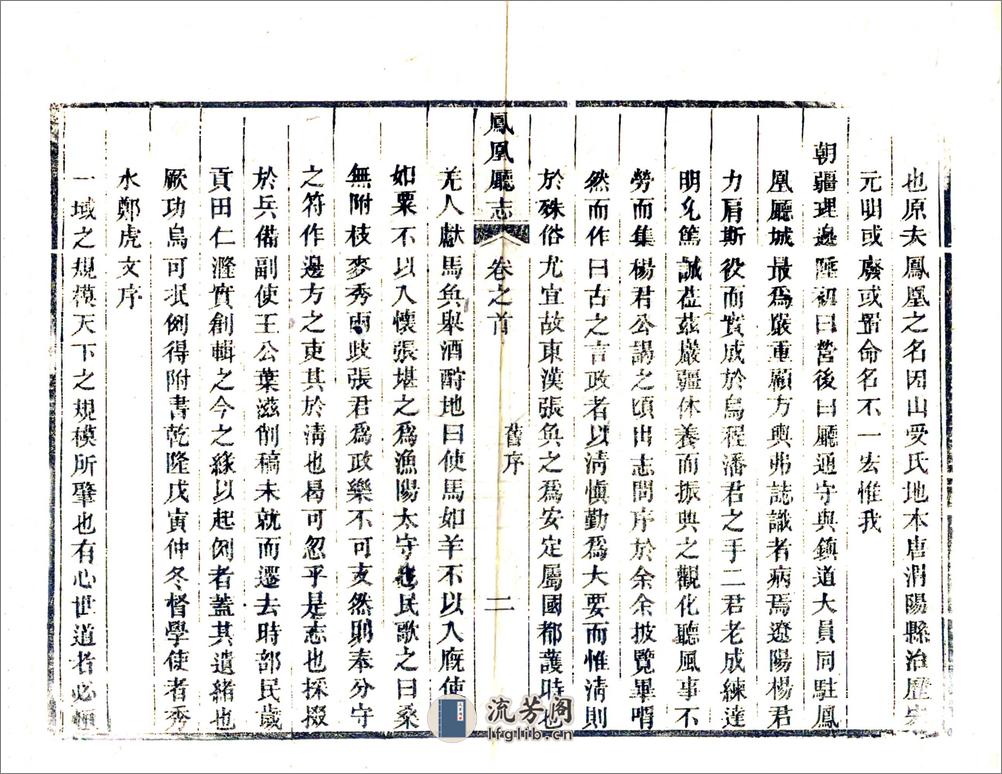 也原夫鳳凰之名因山受氏地本唐渭陽縣治歷宋
元明或廢或置命名不一宏惟我
朝疆理邊陲初曰營後曰廳通守與鎮道大員同駐鳳
凰廳城最爲嚴重顧方輿弗誌識者病焉遼陽楊君
力肩斯役而實成於烏程潘君之手二君老成練達
明允篤誠莅茲嚴疆休養而振興之觀化聽風事不
勞而集楊君公謁之頃出志問序於余余披覽畢喟
然而作曰古之言政者以淸愼勤爲大要而惟淸則
於殊俗尤宜故東漢張奐之爲安定屬國都護時也
鳳凰廳志 卷之首 舊序 二
羌人獻馬奐舉酒酹地曰使馬如羊不以入廐使
如粟不以入懷張堪之爲漁陽太守也民歌之曰桑
無附枝麥秀兩歧張君爲政樂不可支然則奉分守
之符作邊方之吏其於淸也曷可忽乎是志也採掇
於兵備副使王公葉滋削稿未就而遷去時部民歲
貢田仁灃實創輯之今之緣以起例者蓋其遺緒也
厥功烏可泯例得附書乾隆戊寅仲冬督學使者秀
水鄭虎文序
一域之規模天下之規模所肇也有心世道者必
流芳阁
lfglib.cn